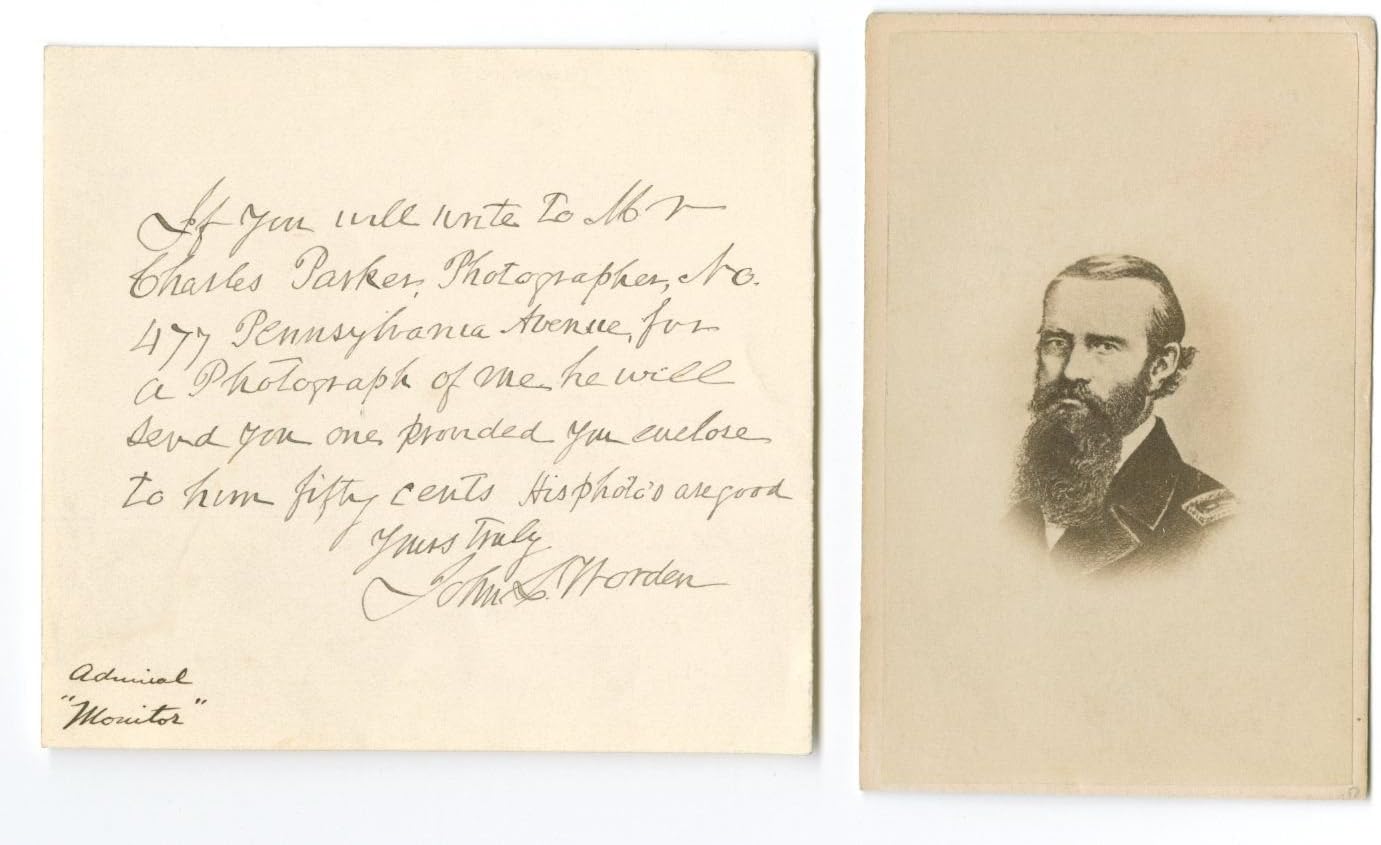 If you will write to Mr
Charles Parker, Photographer, No.
477 Pennsylvania Avenue, for
a Photograph of me he will
send you one provided you enclose
to him fifty cents His photo's are good
Yours truly
John L. Worden
Admiral
"Monitor"